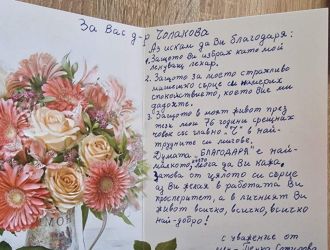 За Вас д-р Чолакова
Аз искам да Ви благодаря:
1. Защото Ви избрах като мой
лекуващ лекар.
2. Защото за моето страхливо
майчинско сърце си намерих
спокойствието, което Вие ми
дадохте.
3. Защото в моят живот през
тези мои 76 години срещнах
човек със главно "Ч" в най-
трудните си мигове.
Думата "БЛАГОДАРЯ" е най-
малкото, което мога да Ви кажа,
затова от цялото си сърце
аз Ви желая в работата Ви
просперитет, а в личният Ви
живот всичко, всичко, всичко
най-добро!
с уважение от
Пенка